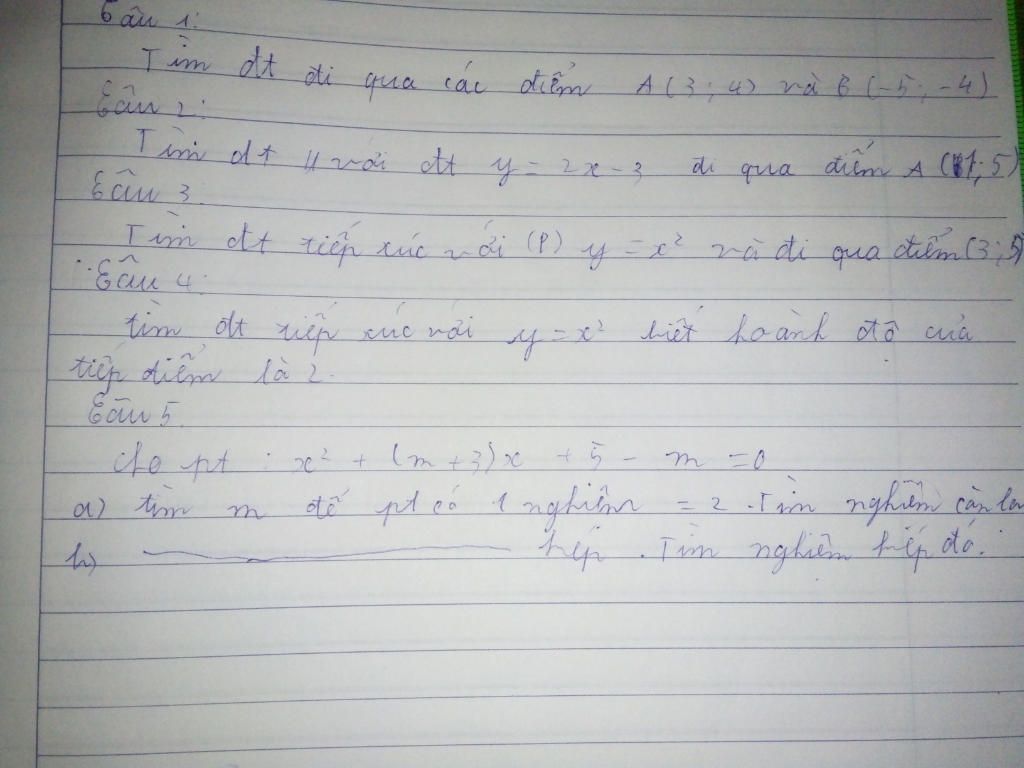 Câu 1:
Tìm đt đi qua các điểm A (3 ; 4) và B (-5 ; -4)
Câu 2:
Tìm đt // với đt y = 2x - 3 đi qua điểm A (1; 5)
Câu 3:
Tìm đt tiếp xúc với (P) y = x² và đi qua điểm (3 ; 5)
Câu 4:
tìm đt tiếp xúc với y = x² biết hoành độ của
tiếp điểm là 2.
Câu 5.
cho pt : x² + (m + 3)x + 5 - m = 0
a) tìm m để pt có 1 nghiệm = 2 . Tìm nghiệm còn lại
b) kép . Tìm nghiệm kép đó.